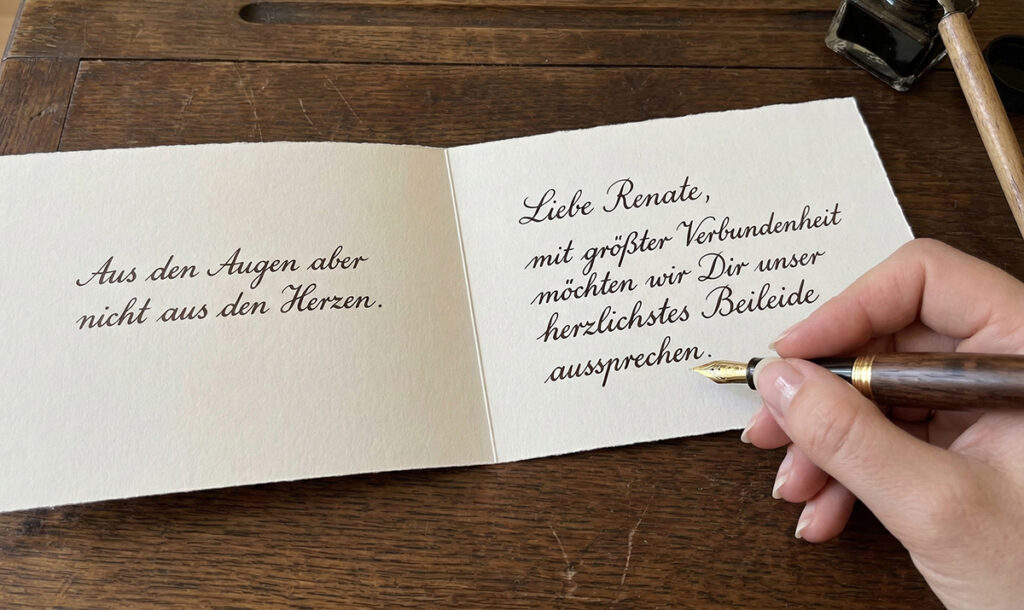 Aus den Augen aber
nicht aus den Herzen.
Liebe Renate,
mit größter Verbundenheit
möchten wir Dir unser
herzlichstes Beileide
aussprechen.